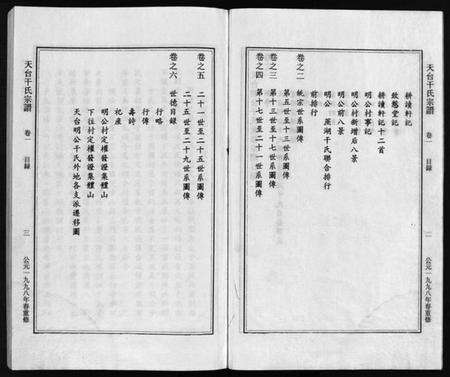 天台干氏宗譜
卷一
目錄
二
公元一九九八年春重修
耕讀軒記
耕讀軒記十二首
明公村事記
明公村新增后八景
明公前八景
明公 蓝湖干氏聯合排行
前排行
卷之二
統宗世系圖傳
第五世至十三世系圖傳
卷之三
第十三世至十七世系圖傳
卷之四
第十七世至二十一世系圖傳
卷之五
二十一世至二十五世系圖傳
二十五世至二十九世系圖傳
卷之六
世德目錄
行略
行傳
壽詩
祀產
明公村定權發證集體山
下往村定權發證集體山
天台明公干氏外地各支派遷移圖
天台干氏宗譜
卷一
目錄
三
公元一九九八年春重修